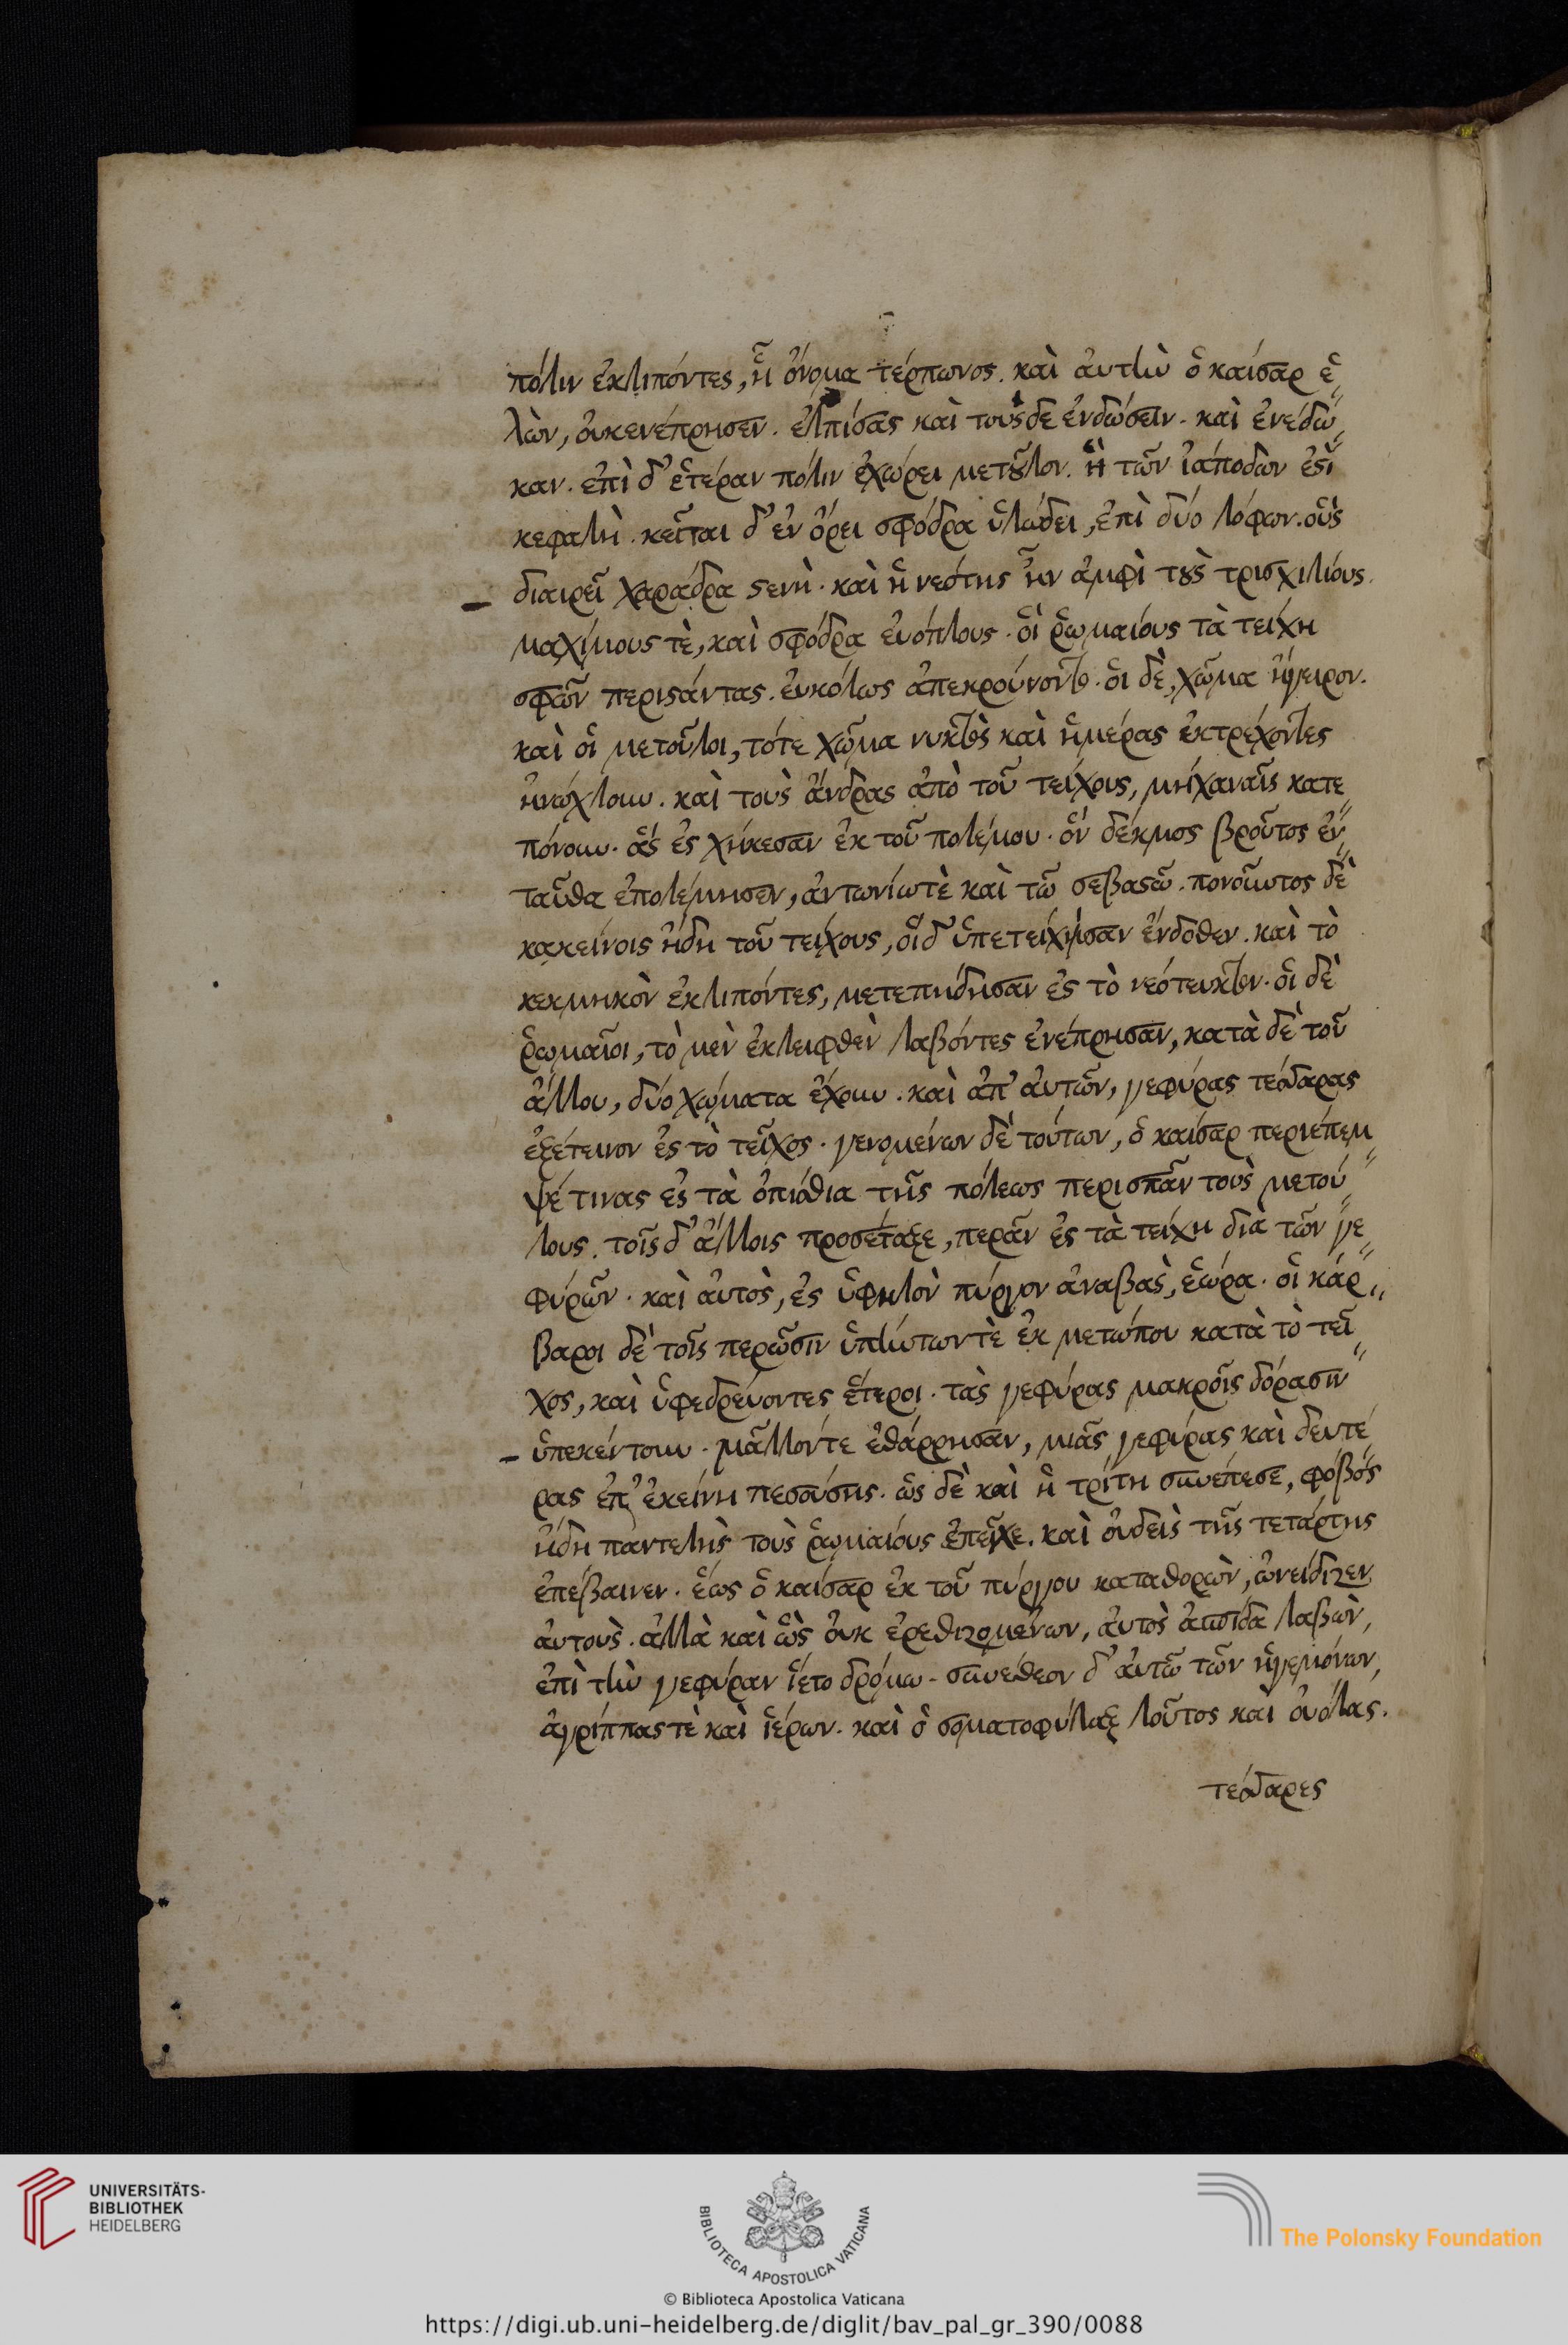 πόλιν ἐκλιπόντες, ᾗ ὄνομα τέρπωνος. καὶ ἀυτὴν ὁ καίσαρ ἑ
λὼν, ὀυκενέπρησεν. ἐλπίσας καὶ τούσδε ἐνδώσειν. καὶ ἐνέδω
καν. ἐπὶ δ' ἑτέραν πόλιν ἐχώρει μετοῦλον. ἣ τῶν ἰαπόδων ἐστὶ
κεφαλὴ. κεῖται δ' ἐν ὄρει σφόδρα ὑλώδει, ἐπὶ δύο λόφων. οὓς
διαιρεῖ χαράδρα στενὴ. καὶ ἡ νεότης ἦν ἀμφὶ τοὺς τρισχιλίους.
μαχίμους τὲ, καὶ σφόδρα ἐυόπλους. ὁὶ ῥωμαίους τὰ τείχη
σφῶν περιστάντας. ἐυκόλως ἀπεκρούνοντο. ὁι δὲ, χῶμα ἤγειρον.
καὶ ὁι μετοῦλοι, τότε χῶμα νυκτὸς καὶ ἡμέρας ἐκτρέχοντες
ἠνώχλουν. καὶ τοὺς ἄνδρας ἀπὸ τοῦ τείχους, μηχαναῖς κατε
πόνουν. ἅς ἐς χήκεσαν ἐκ τοῦ πολέμου. ὅν δέκμος βροῦτος ἐν
ταῦθα ἐπολέμησεν, ἀντωνίωτὲ καὶ τῶ σεβαστῶ. πονοῦντος δὲ
κακείνοις ἤδη τοῦ τείχους, ὁἵδ' ὑπετείχησαν ἔνδοθεν. καὶ τὸ
κεκμηκὸν ἐκλιπόντες, μετεπήδησαν ἐς τὸ νεότευκτον. ὁι δὲ
ῥωμαῖοι, τὸ μὲν ἐκλειφθὲν λαβόντες ἐνέπρησαν, κατὰ δὲ τοῦ
ἄλλου, δύο χώματα ἔχουν. καὶ ἀπ' ἀυτῶν, γεφύρας τέσσαρας
ἐξέτεινον ἐς τὸ τεῖχος. γενομένων δὲ τούτων, ὁ καίσαρ περιέπεμ
ψέ τινας ἐς τὰ ὀπίσθια τῆς πόλεως περισπᾶν τοὺς μετού
λους. τοῖς δ' ἄλλοις προσέταξε, περᾶν ἐς τὰ τείχη διὰ τῶν γε
φύρῶν. καὶ ἀυτὸς, ἐς ὑψηλὸν πύργον ἀναβὰς, ἑώρα. ὁι κάρ
βαροι δὲ τοῖς περῶσιν ὑπήντωντὲ ἐκ μετώπου κατὰ τὸ τεῖ
χος, καὶ ὑφεδρεύοντες ἕτεροι. τὰς γεφύρας μακροῖς δόρασιν
ὑπεκέντουν. μᾶλλόντε ἐθάρρησαν, μιᾶς γεφύρας καὶ δευτέ
ρας ἐπ' ἐκείνη πεσούσης. ὡς δὲ καὶ ἡ τρίτη συνέπεσε, φόβός
ἤδη παντελὴς τοὺς ῥωμαίους ἐπεῖχε. καὶ ὀυδεὶς τῆς τετάρτης
ἐπέβαινεν. ἕως ὁ καίσαρ ἐκ τοῦ πύργου καταθορὼν, ὠνείδιζεν
ἀυτοὺς. ἀλλὰ καὶ ὣς ὀυκ ἐρεθιζομένων, ἀυτὸς ἀσπίδα λαβὼν,
ἐπὶ τὴν γεφύραν ἵετο δρόμω. συνέθεον δ' ἀυτῶ τῶν ἡγεμόνων,
ἀγρίππαςτὲ καὶ ἱέρων. καὶ ὁ σοματοφύλαξ λοῦτος καὶ ὀυόλας.
τέσσαρες
UNIVERSITÄTS-
BIBLIOTHEK
HEIDELBERG
BIBLIOTECA APOSTOLICA VATICANA
The Polonsky Foundation
© Biblioteca Apostolica Vaticana
https://digi.ub.uni-heidelberg.de/diglit/bav_pal_gr_390/0088